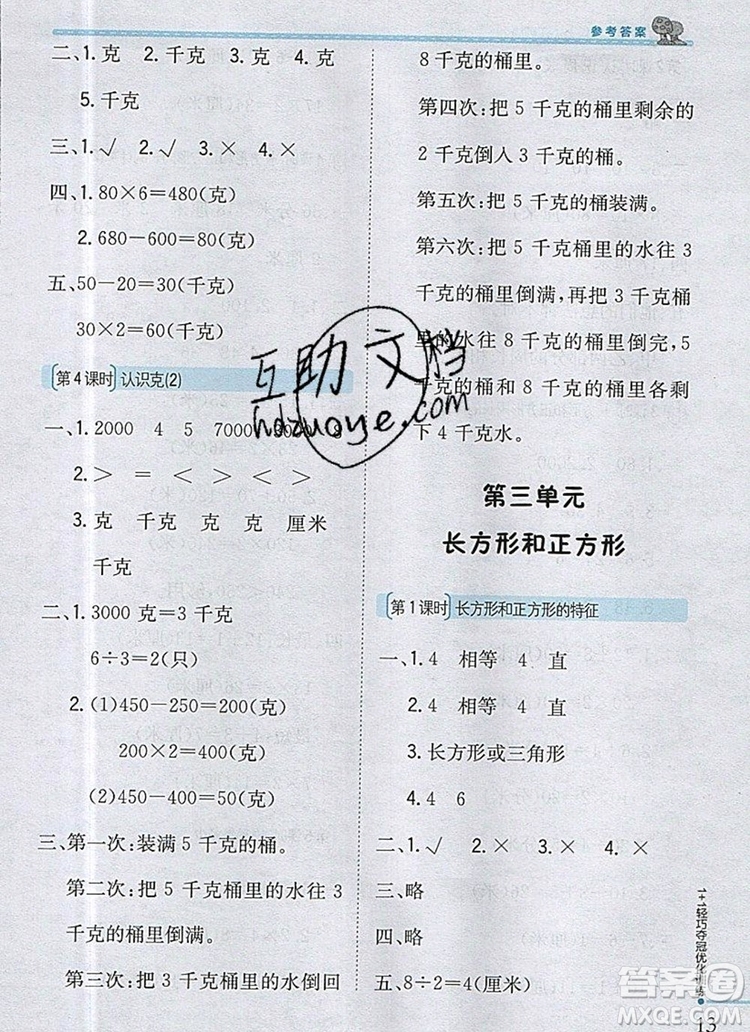 参考答案
二、1.克 2.千克 3.克 4.克
5.千克
三、1.√ 2.√ 3.× 4.×
四、1.80×6=480(克)
2.680-600=80(克)
五、50-20=30(千克)
30×2=60(千克)
第4课时 认识克(2)
一、1.2000 4 5 7000 3000 8
2.> = < > < >
3.克 千克 克 克 厘米
千克
二、1.3000克=3千克
6÷3=2(只)
2.(1)450-250=200(克)
200×2=400(克)
(2)450-400=50(克)
三、第一次:装满5千克的桶。
第二次:把5千克桶里的水往3
千克的桶里倒满。
第三次:把3千克桶里的水倒回
8千克的桶里。
第四次:把5千克的桶里剩余的
2千克倒入3千克的桶。
第五次:把5千克的桶装满。
第六次:把5千克桶里的水往3
千克的桶里倒满,再把3千克桶
里的水往8千克的桶里倒完,5
千克的桶和8千克的桶里各剩
下4千克水。
第三单元
长方形和正方形
第1课时 长方形和正方形的特征
一、1.4 相等 4 直
2.4 相等 4 直
3.长方形或三角形
4.4 6
二、1.√ 2.× 3.× 4.×
三、略
四、略
五、8÷2=4(厘米)
1+1轻巧夺冠优化训练
13
互助文档
hdzuoye.com
答案圈
MXQE.COM